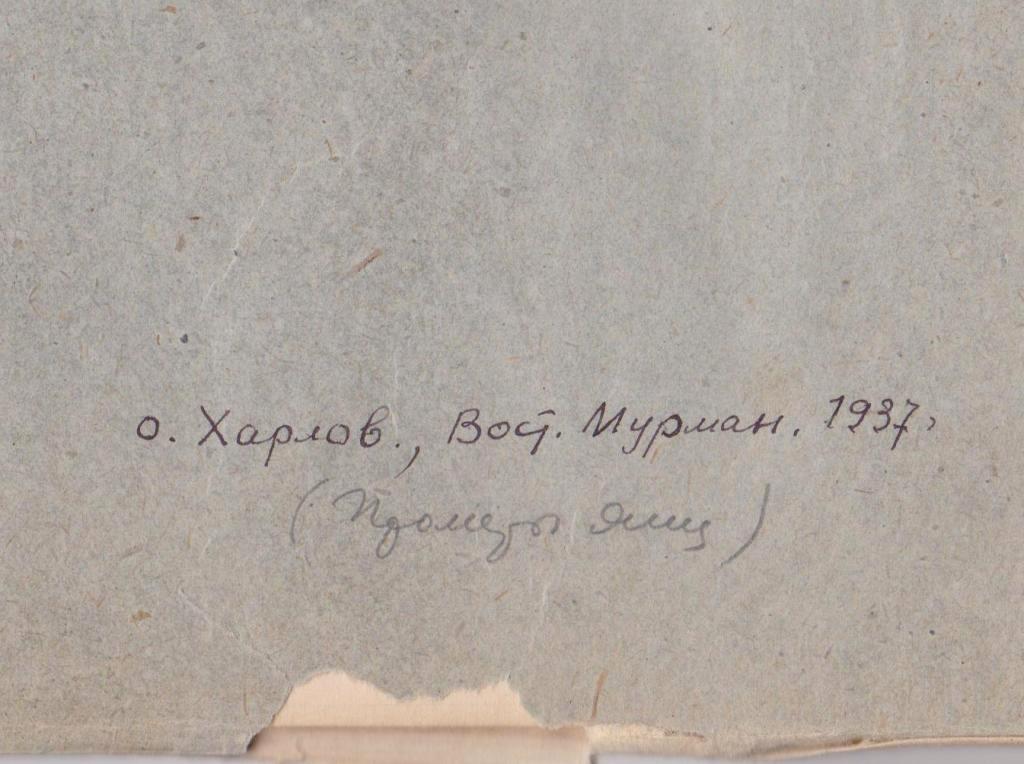 о. Харлов., Вост. Мурман. 1937,
(Промеры яиц)